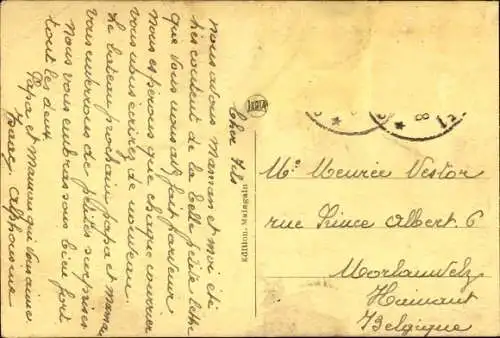 Cher Fils
nous avons Maman et moi été
très content de la belle petite lettre
que vous nous avez fait parvenir
nous espérons que chaque courrier
vous nous écrirez de nouveau.
Le bateau prochain papa et maman
vous enverrons de petites surprises
nous vous embrassons bien fort
tout les deux
Papa et maman qui vous aiment
Alphonsine
Edition, Matagalin
8
12
Mr Meurée Nestor
rue Prince Albert 6
Morlanwelz
Hainaut
Belgique